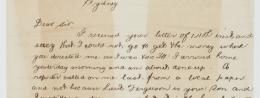 Sydney
Dear Sir,
I received your letter of 11th inst and
sorry that I could not go to get the money when
you directed me as I was I arrived home
yesterday morning and am almost done up. A
reporter called on me last from a local paper
and not because Lieut Ferguson is your Son and